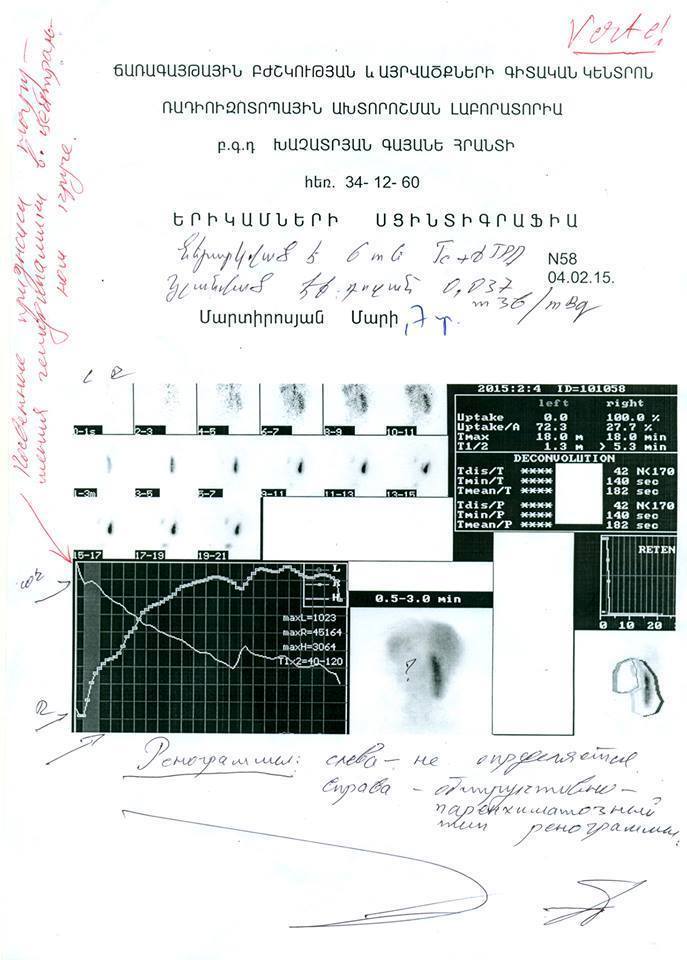 Verte!
Косвенные признаки
ՃԱՌԱԳԱՅԹԱՅԻՆ ԲԺՇԿՈՒԹՅԱՆ և ԱՅՐՎԱԾՔՆԵՐԻ ԳԻՏԱԿԱՆ ԿԵՆՏՐՈՆ
ՌԱԴԻՈՒԶՈՏՈՊԱՅԻՆ ԱԽՏՈՐՈՇՄԱՆ ԼԱԲՈՐԱՏՈՐԻԱ
բ.գ.դ ԽԱՉԱՏՐՅԱՆ ԳԱՅԱՆԵ ՀՐԱՆՏԻ
հեռ. 34- 12- 60
ԵՐԻԿԱՄՆԵՐԻ ՍՑԻՆՏԻԳՐԱՖԻԱ
Ներարկված է 6 mKi
N58
04.02.15.
0,037 mЗв/mBq
Մարտիրոսյան Մարի, 7 տ.
L R
0-1s 2-3 4-5 6-7 8-9 10-11
1-3m 3-5 5-7 9-11 11-13 13-15
15-17 17-19 19-21
2015:2:4 ID=101058
left right
Uptake 0.0 100.0 %
Uptake/A 72.3 27.7 %
Tmax 18.0 m 18.0 min
T1/2 1.3 m > 5.3 min
DECONVOLUTION
Tdis/T **** 42 NK170
Tmin/T **** 140 sec
Tmean/T **** 182 sec
Tdis/P **** 42 NK170
Tmin/P **** 140 sec
Tmean/P **** 182 sec
RETEN
0 10 20
L
R
H
maxL=1023
maxR=45164
maxH=3064
T1x2=40-120
0.5-3.0 min
?
R
Ренограммы: слева - не определяется
справа - обструктивно-
паренхиматозный
тип ренограммы.